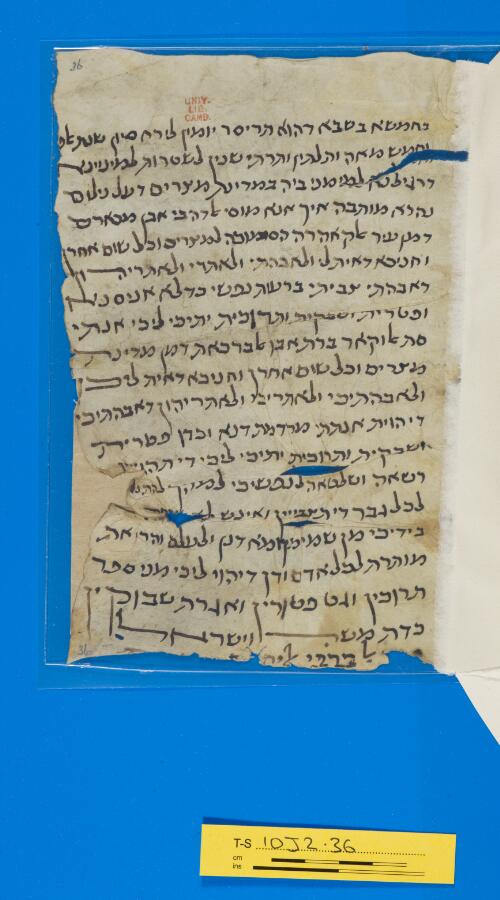 36
UNIV.
LIB.
CAMB.
בחמשא בשבא דהוא תריסר יומין לירח סיון שנת
וחמש מאה ותלתין ותרתי שנין לשטרות למינינא
דרגילנא לממני ביה במדינת מצרים דעל נילוס
נהרא מותבה איך אנא מוסי אבן
דמן אלקאהרה הסמוכה למצרים וכל שום אחרן
וחניכא דאית לי ולאבהתי ולאתרי ולאתריה
דאבהתי צביתי ברעות נפשי בדלא אניסנא
ופטרית ושבקית ותרוכית יתיכי ליכי אנתי
סת אלוקאר ברת אבו אלברכאת דמן מדינת
מצרים וכל שום אחרן וחניכא דאית ליכי
ולאבהתיכי ולאתריכי ולאתריהון דאבהתיכי
דיהוית אנתתי מקדמת דנא וכדן פטרית
ושבקית ותרוכית יתיכי ליכי די תהוייין
רשאה ושלטאה לנפשיכי למהך
לכל גבר די תצביין ואינש לא
בידיכי מן שמי מן יומא דנן ולעלם והרי את
מותרת לכל אדם ודן דיהוי ליכי מני ספר
תרוכין וגט פטורין ואגרת שבוקין
כדת משה וישראל
36
T-S 10J2.36
cm
ins